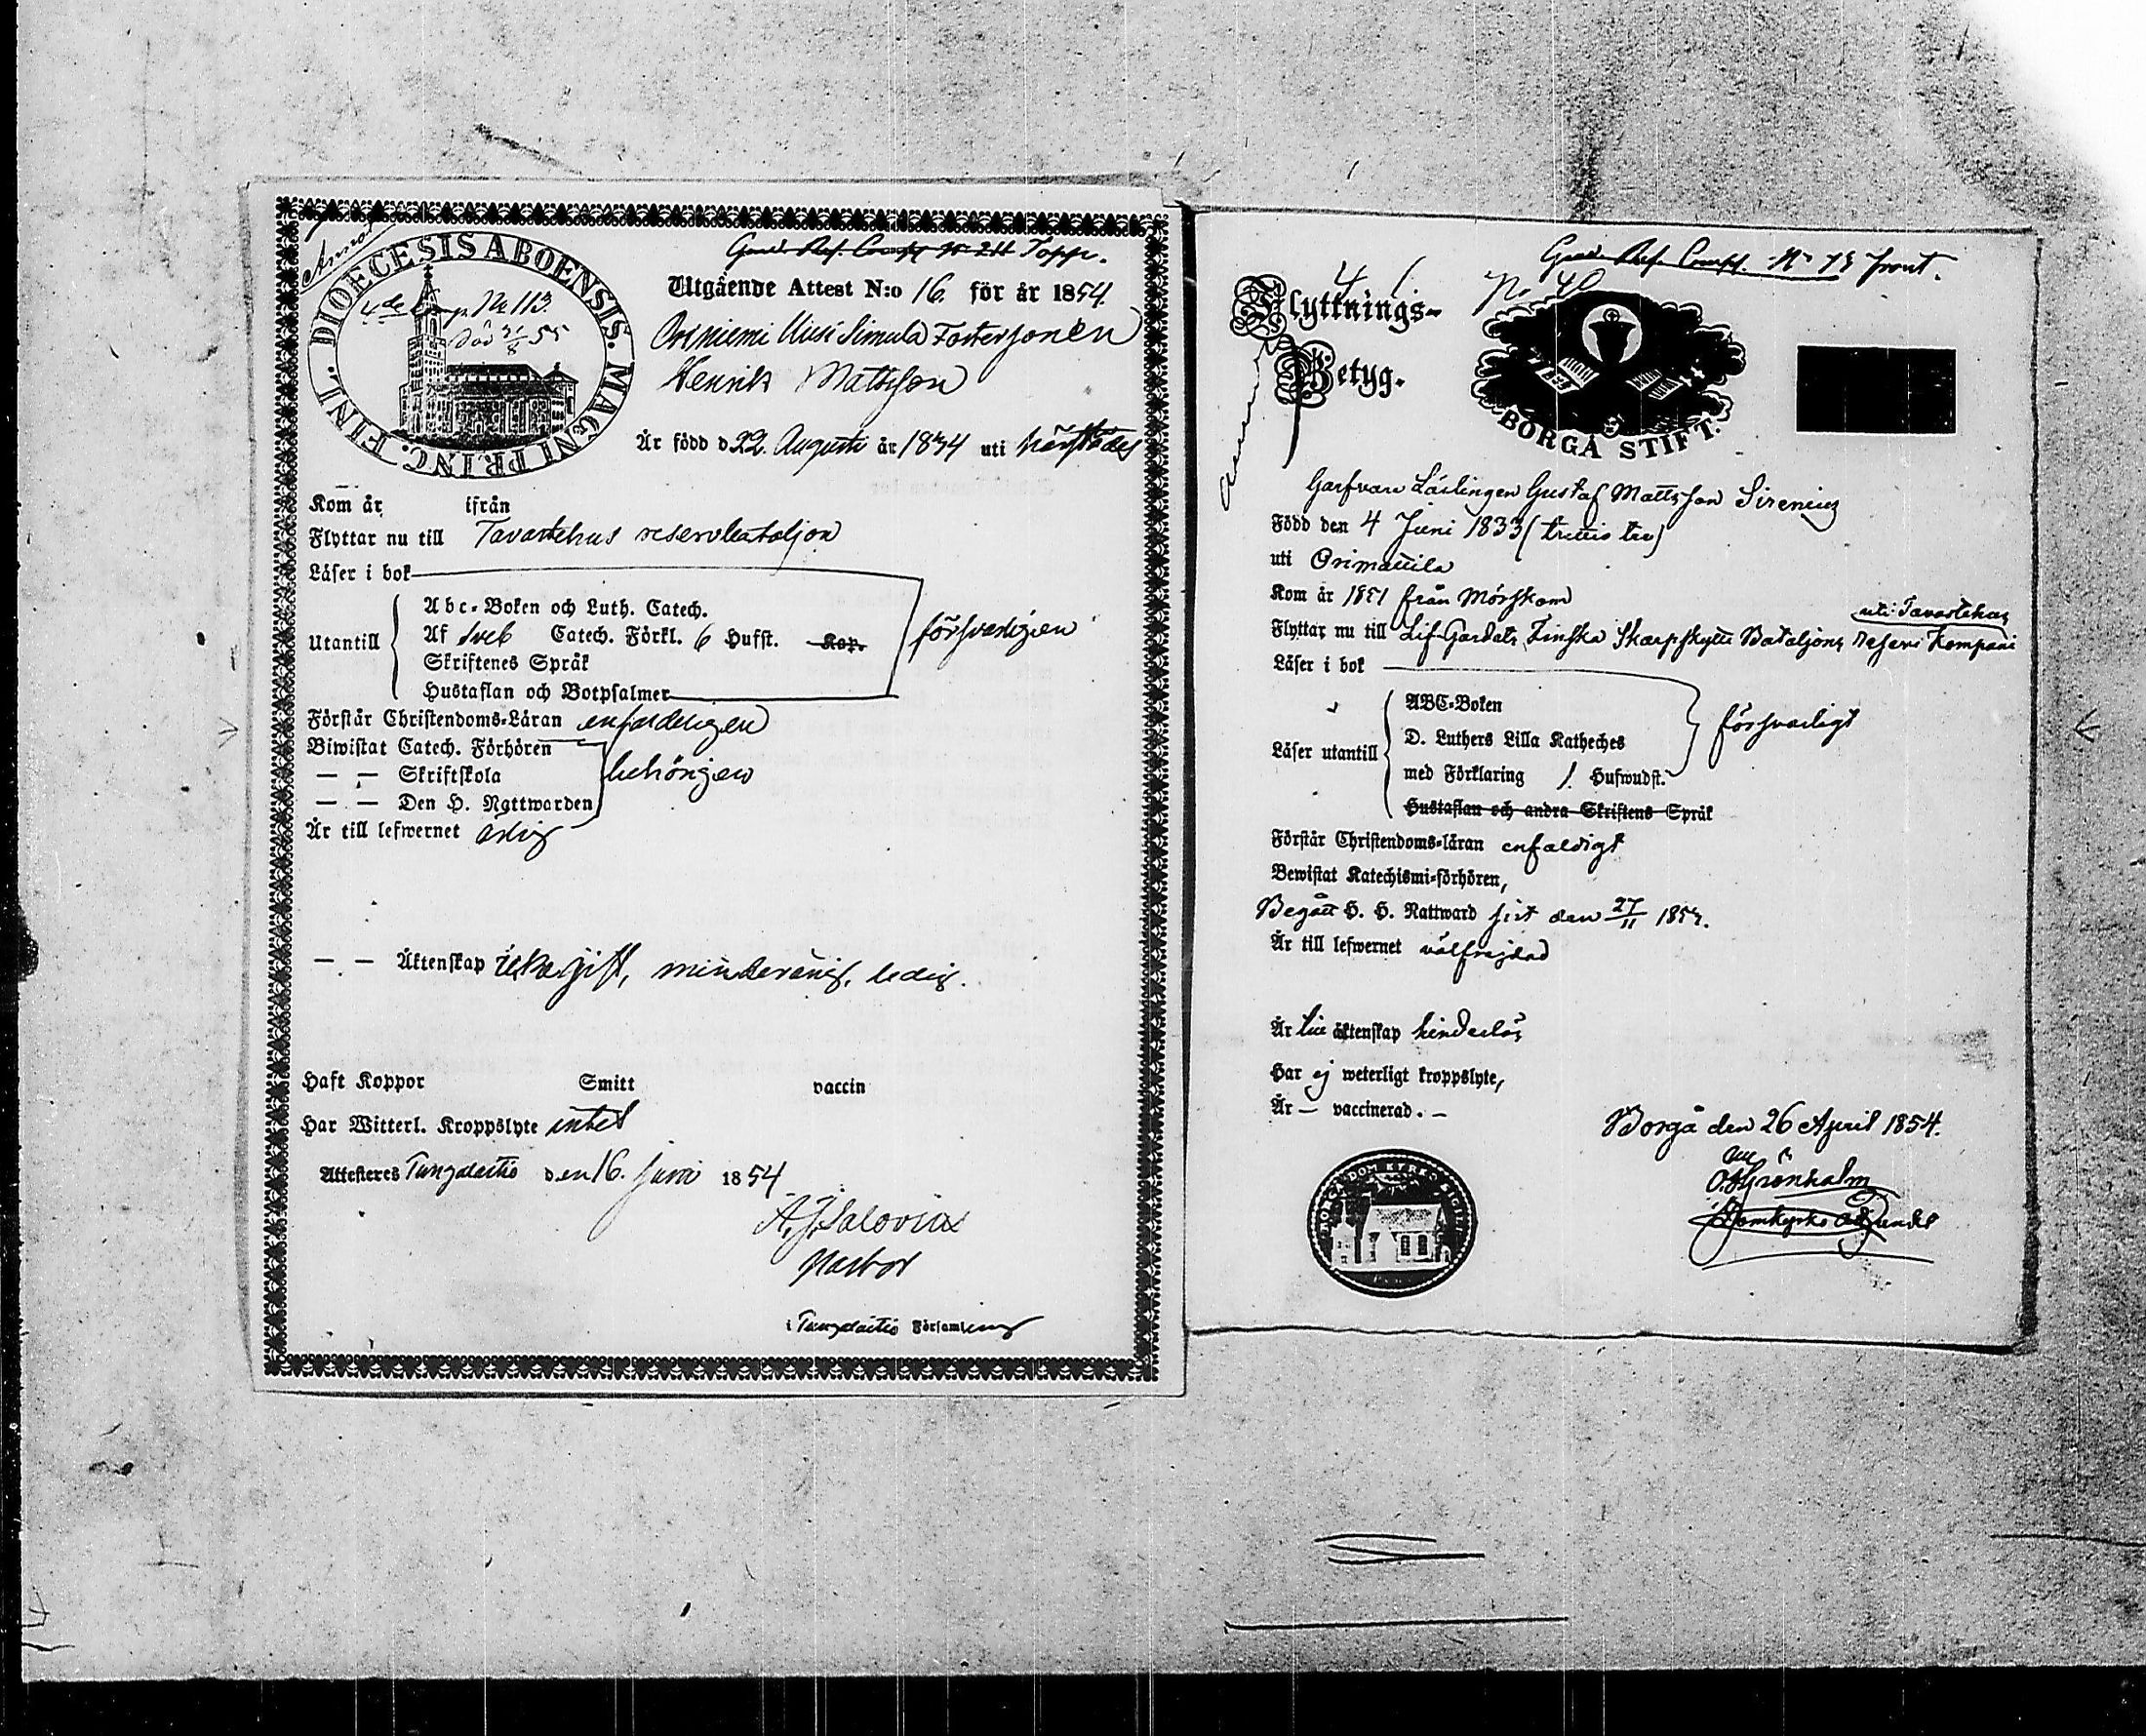 DIOECESIS ABOENSIS. MAGNI PRINC. FINL.
4de Comp. No 113.
Död 31/8 55
Gard. Res. Comp. No 211 Toppr.
Utgående Attest N:o 16. för år 1854
Oriniemi Uusi Simula Fostersonen
Henrik Mattsson
Är född d 22. Augusti år 1834 uti härstädes
Kom år ifrån
Flyttar nu till Tavastehus reservbataljon
Läser i bok
Utantill
Abc-Boken och Luth. Catech.
Af Sveb Catech. Förkl. 6 Hufst. Kap.
Skriftenes Språk
Hustaflan och Botpsalmer
försvarligen
Förstår Christendoms-Läran enfaldeligen
Biwistat Catech. Förhören
— — Skriftskola
— — Den H. Nattwarden
behörigen
Är till lefwernet ärlig
— . — Äktenskap icke gift, minderårig, ledig.
Haft Koppor Smitt vaccin
Har Witterl. Kroppslyte intet
Attesteres Tungelartio den 16. Juni 1854
A. J. Salovius
Pastor
i Tungelartio Församling
Gard. Res. Compl. No 78 front.
4 1.
No 40
Flyttnings-
Betyg.
BORGÅ STIFT.
Garfvare Lärlingen Gustaf Mattsson Sirenius
Född den 4 Juni 1833 (trettio tre)
uti Orimattila
Kom år 1851 från Mörskom
uti Tavastehus
Flyttar nu till Lif-Gardets Finska Skarpskytte Bataljons reserv Kompani
Läser i bok
Läser utantill
ABC-Boken
D. Luthers Lilla Katheches
med Förklaring 1. Hufwudst.
Hustaflan och andra Skriftens Språk
försvarligt
Förstår Christendoms-läran enfaldigt
Bewistat Katechismi-förhören,
Begått H. H. Nattward sist den 27/11 1853.
Är till lefwernet välfrejdad
Är till äktenskap hinderlös
Har ej weterligt kroppslyte,
Är — vaccinerad. —
Borgå den 26 April 1854.
O. Grönholm
Domkyrko Adjunkt
BORGÅ DOM KYRKO SIGILL